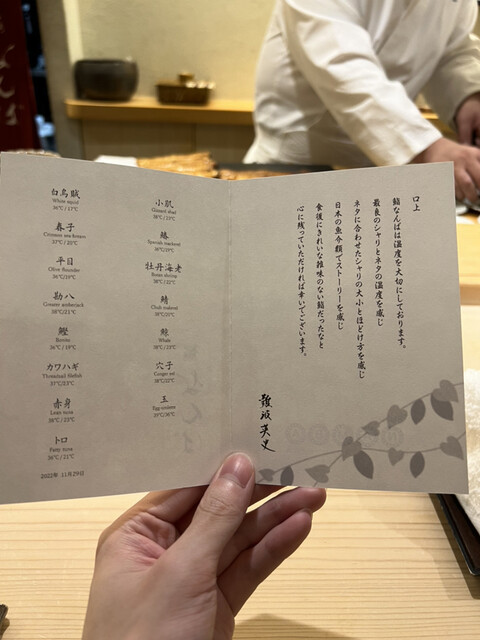 白烏賊
White squid
36℃ / 17℃
春子
Crimson sea bream
37℃ / 20℃
平目
Olive flounder
36℃ / 19℃
勘八
Greater amberjack
38℃ / 21℃
鰹
Bonito
36℃ / 18℃
カワハギ
Threadsail filefish
37℃ / 23℃
赤身
Lean tuna
38℃ / 22℃
トロ
Fatty tuna
36℃ / 21℃
2022年 11月29日
小肌
Gizzard shad
38℃ / 19℃
Spanish mackerel
36℃ / 19℃
牡丹海老
Botan shrimp
38℃ / 22℃
鯖
Chub mackerel
38℃ / 21℃
鯨
Whale
38℃ / 23℃
穴子
Conger eel
玉
口上
鮨なんばは温度を大切にしております。
最良のシャリとネタの温度を感じ
ネタに合わせたシャリの大小とほどけ方を感じ
日本の魚介類でストーリーを感じ
食後にきれいな雑味のない鮨だったなと
心に残っていただければ幸いでございます。
難波英史